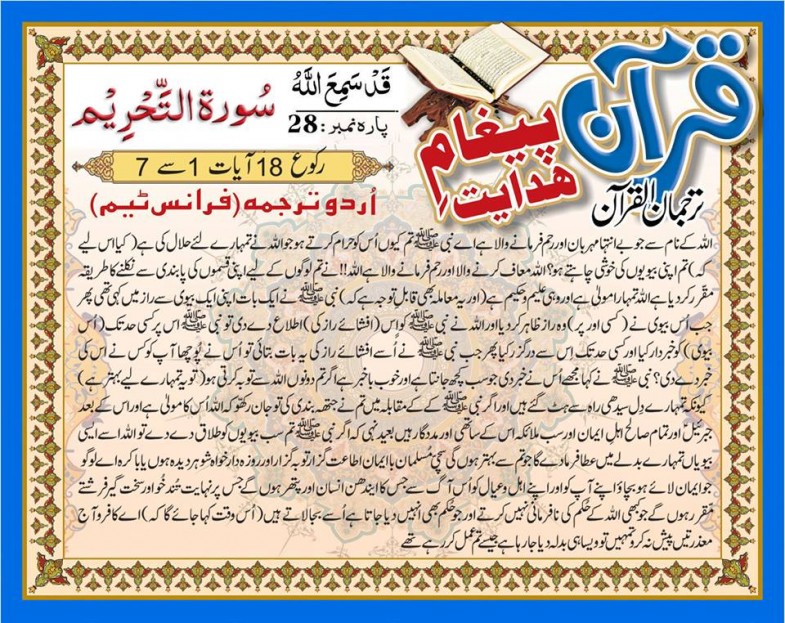 قرآن
پیغامِ
ھدایت
ترجمان القرآن
قَدْ سَمِعَ اللّٰهُ
پارہ نمبر : 28
سُورۃ التَّحْرِیْم
رکوع 18 آیات 1 سے 7
اُردو ترجمہ (فرانس ٹیم)
اللہ کے نام سے جو بے انتہا مہربان اور رحم فرمانے والا ہے اے نبی ﷺ تم کیوں اُس کو حرام کرتے ہو جو اللہ نے تمہارے لئے حلال کی ہے (کیا اس لیے
کہ) تم اپنی بیویوں کی خوشی چاہتے ہو؟ اللہ معاف کرنے والا اور رحم فرمانے والا ہے اللہ!! نے تم لوگوں کے لیے اپنی قسموں کی پابندی سے نکلنے کا طریقہ
مقرر کر دیا ہے اللہ تمہارا مولیٰ ہے اور وہی علیم و حکیم ہے (اور یہ معاملہ بھی قابل توجہ ہے کہ) نبی ﷺ نے ایک بات اپنی ایک بیوی سے راز میں کہی تھی پھر
جب اُس بیوی نے (کسی اور پر) وہ راز ظاہر کر دیا اور اللہ نے نبی ﷺ کو اس (افشائے راز کی) اطلاع دے دی تو نبی ﷺ اس پر کسی حد تک (اُس
بیوی) کو خبردار کیا اور کسی حد تک اس سے درگزر کیا پھر جب نبی ﷺ نے اُسے افشائے راز کی یہ بات بتائی تو اُس نے پُوچھا آپ کو کس نے اس کی
خبر دے دی؟ نبی ﷺ نے کہا مجھے اُس نے خبر دی جو سب کچھ جانتا ہے اور خوب باخبر ہے اگر تم دونوں اللہ سے توبہ کرتی ہو (تو یہ تمہارے لیے بہتر ہے)
کیونکہ تمہارے دل سیدھی راہ سے ہٹ گئے ہیں اور اگر نبی ﷺ کے کے مقابلہ میں تم نے جتھہ بندی کی تو جان رکھو کہ اللہ اُس کا مولیٰ ہے اور اس کے بعد
جبرئیل اور تمام صالح اہلِ ایمان اور سب ملائکہ اس کے ساتھی اور مددگار ہیں بعید نہیں کہ اگر نبی ﷺ تم سب بیویوں کو طلاق دے دے تو اللہ اسے ایسی
بیویاں تمہارے بدلے میں عطا فرمادے گا جو تم سے بہتر ہوں گی سچی مُسلمان باایمان اطاعت گزار توبہ گزار اور روزہ دار خواہ شوہر دیدہ ہوں یا باکرہ اے لوگو
جو ایمان لائے ہو بچاؤ اپنے آپ کو اور اپنے اہل و عیال کو اُس آگ سے جس کا ایندھن انسان اور پتھر ہوں گے جس پر نہایت تُند خُو اور سخت گیر فرشتے
مقرر ہوں گے جو کبھی اللہ کے حکم کی نافرمانی نہیں کرتے اور جو حکم بھی انہیں دیا جاتا ہے اُسے بجا لاتے ہیں (اُس وقت کہا جائے گا کہ) اے کافرو آج
معذرتیں پیش نہ کرو تمہیں تو ویسا ہی بدلہ دیا جا رہا ہے جیسے تم عمل کر رہے تھے